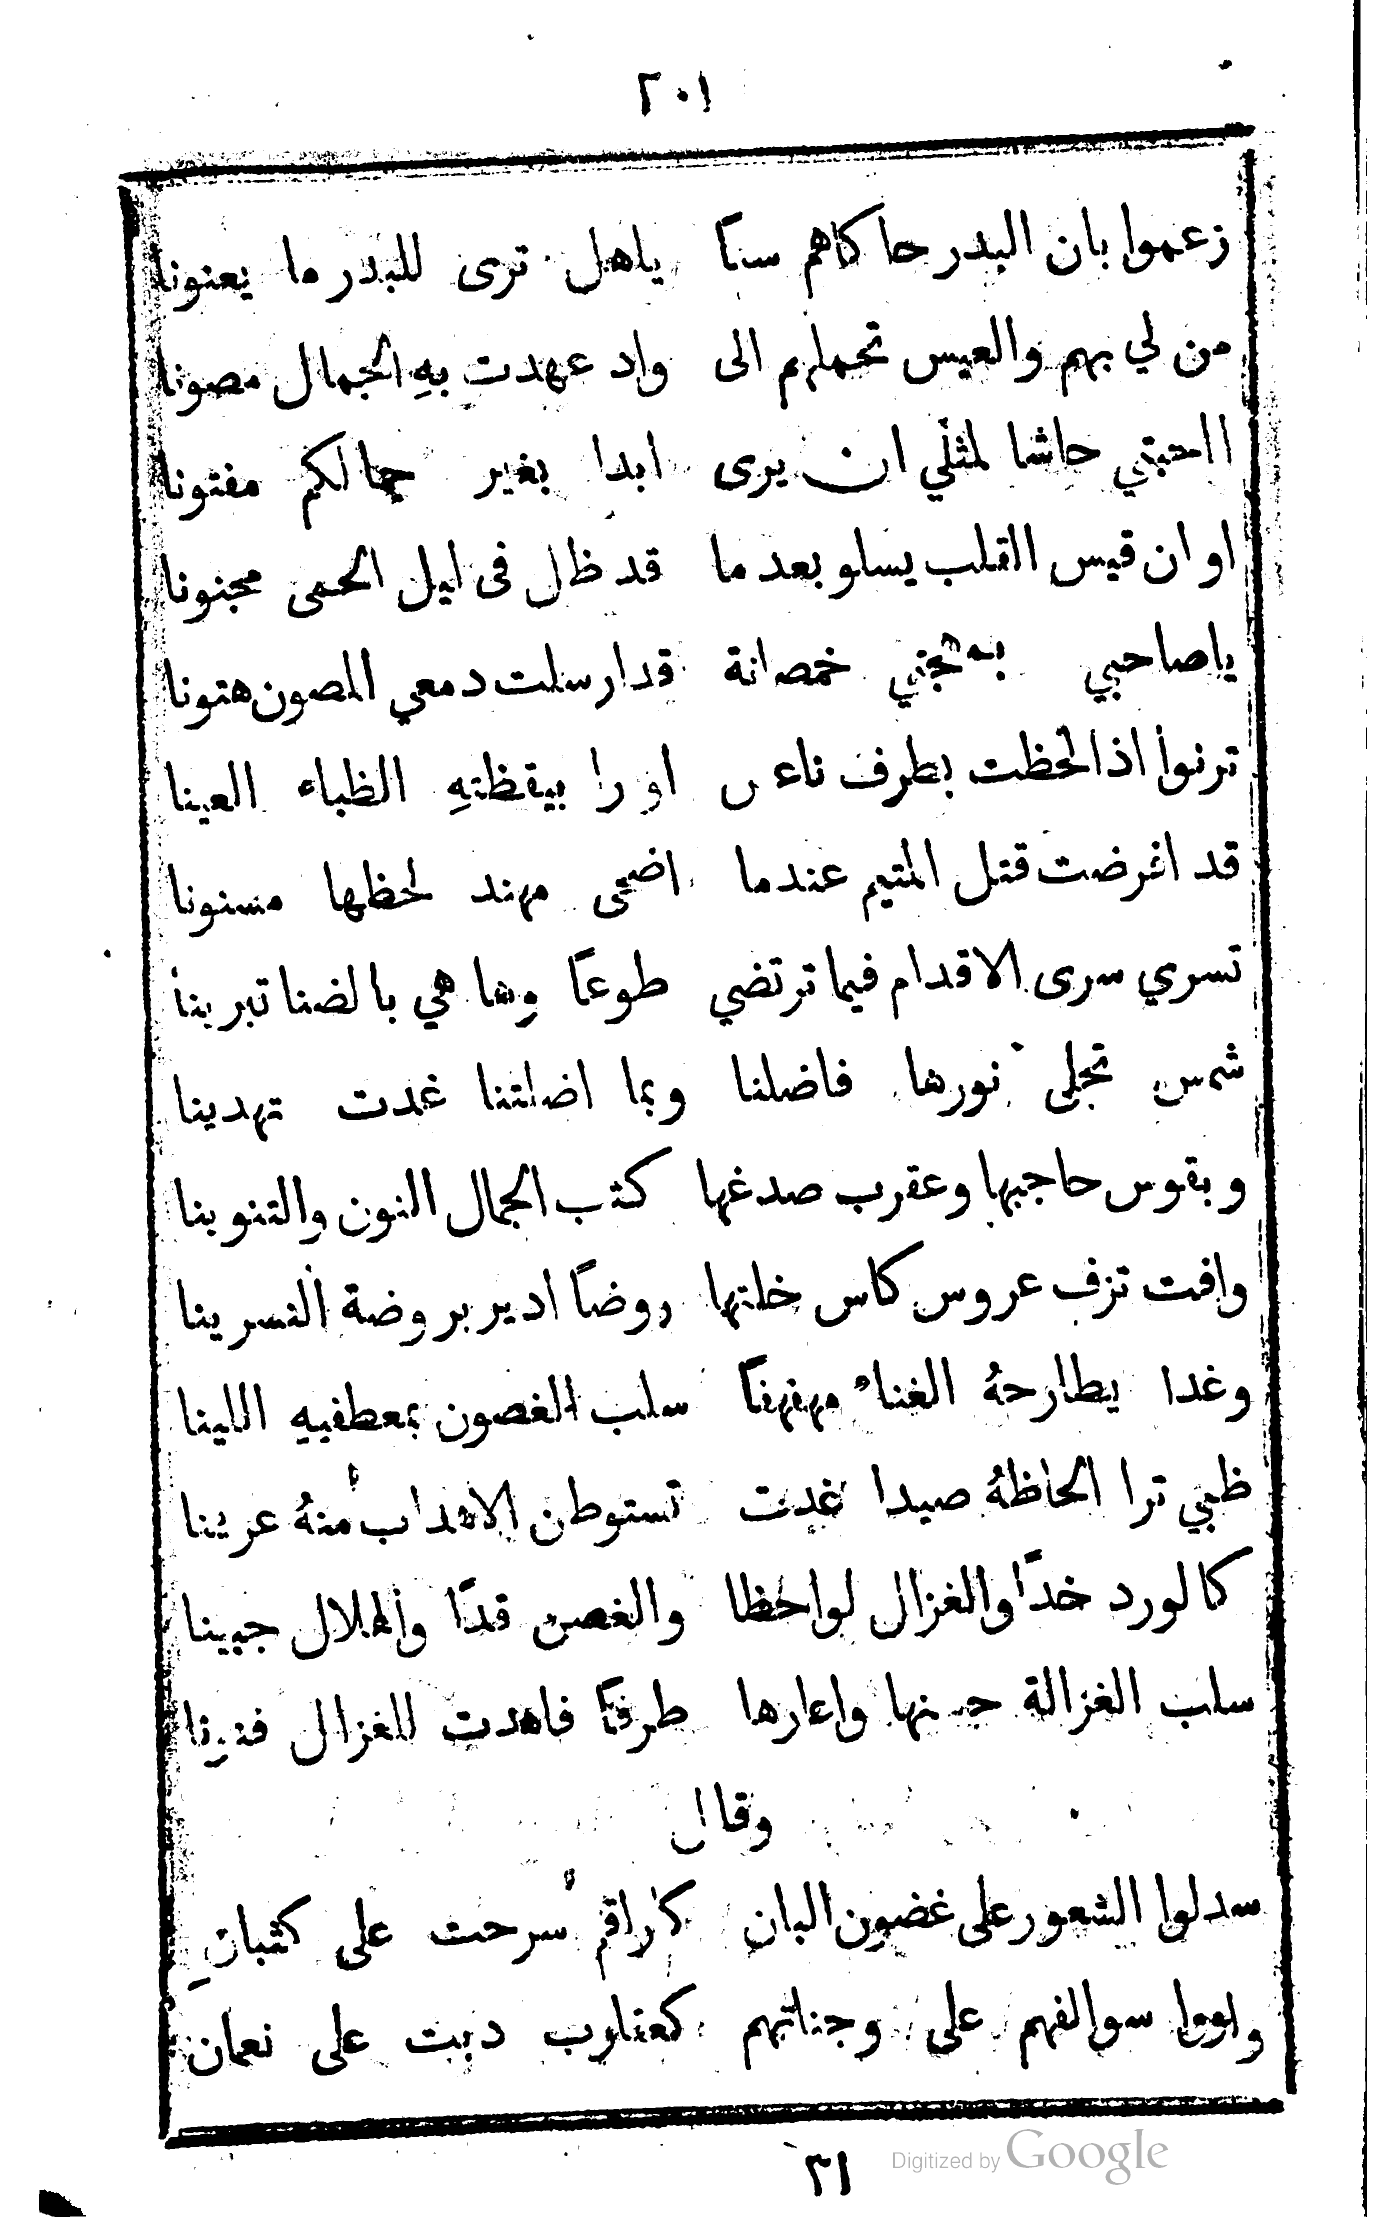 ٢٠١
زعموا بان البدر حاكاهم سناً ياهل ترى للبدر ما يعنونا
من لي بهم والعيس تحملهم الى واد عهدت بهِ الجمال مصونا
ااحبتي حاشا لمثلي ان يرى ابدا بغير جمالكم مفتونا
او ان قيس القلب يسلو بعد ما قد ظال في ليل الحمى مجنونا
ياصاحبي بمهجتي خمصانة قد ارسلت دمعي المصون هتونا
ترنوا اذا لحظت بطرف ناعس اورا بيقظتهِ الظباء العينا
قد اغرضت قتل المتيم عندما اضحى مهند لحظها مسنونا
تسري سرى الاقدام فيما ترتضي طوعاً وها هي بالضنا تبرينا
شمس تجلى نورها فاضلنا وبما اضلتنا غدت تهدينا
وبقوس حاجبها وعقرب صدغها كتب الجمال النون والتنوينا
وافت تزف عروس كاس خلتها روضاً ادير بروضة النسرينا
وغدا يطارحهُ الغناء مهفهفاً سلب الغصون بمعطفيهِ اللينا
ظبي ترا الحاظهُ صيدا غدت تستوطن الاهداب منهُ عرينا
كالورد خدّاً والغزال لواحظا والغصن قدّاً والهلال جبينا
سلب الغزالة حسنها واعارها طرفاً فاهدت للغزال فتونا
وقال
سدلوا الشعور على غضون البان كاراقم سرحت على كثبانِ
ولووا سوالفهم على وجناتهم كعقارب دبت على نعمان
٢١
Digitized by Google